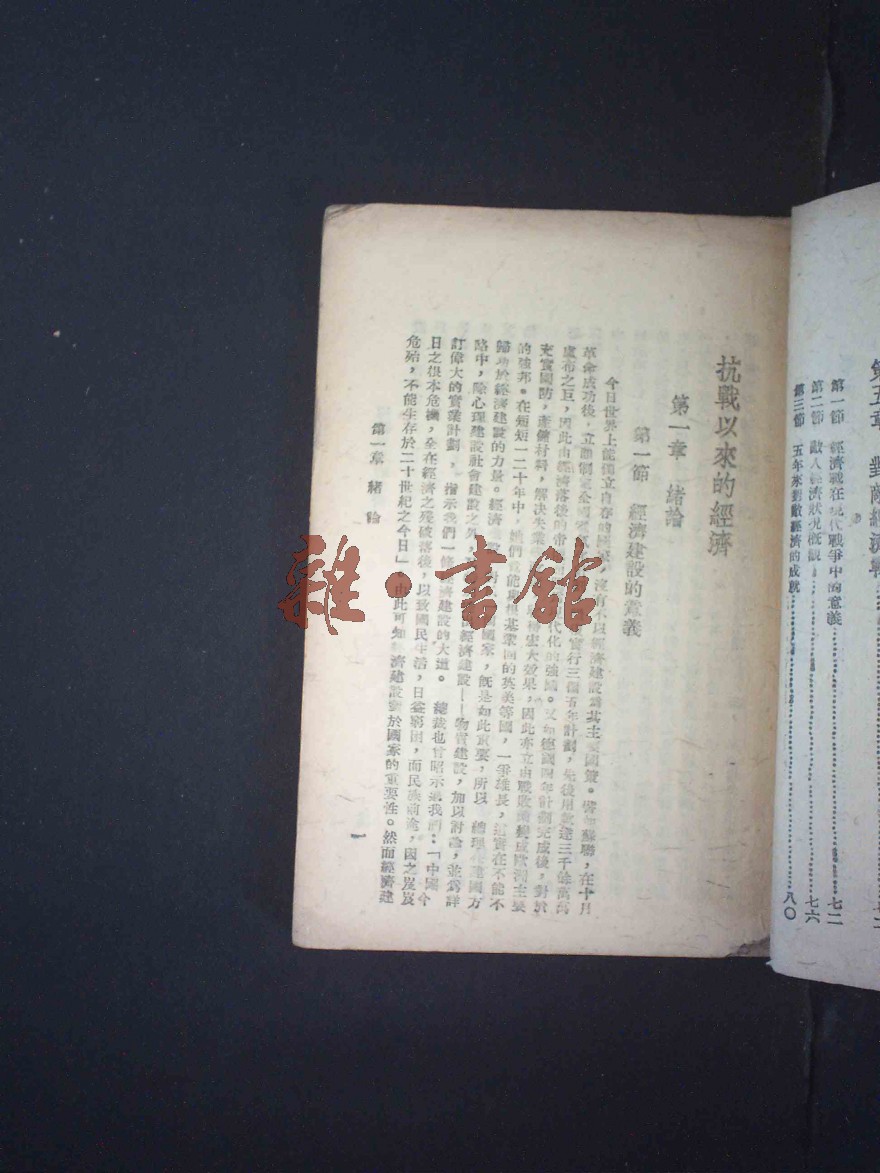 第五章 對敵經濟戰
第一節 經濟戰在現代戰爭中的意義 七二
第二節 敵人經濟狀況概觀 七六
第三節 五年來對敵經濟的成就 八〇
抗戰以來的經濟
第一章 緒論
第一節 經濟建設的意義
今日世界上能獨立自存的國家,沒有不以經濟建設爲其主要國策。譬如蘇聯,在十月
革命成功後,立卽制定全國 實行三個五年計劃,先後用款達三千餘萬萬
盧布之巨,因此由經濟落後的帝 代化的強國。又如德國四年計劃完成後,對於
充實國防,產儲材料,解決失業 宏大效果,因此亦立由戰敗國變成歐洲主要
的強邦。在短短一二十年中,她們 能與根基鞏固的英美等國,一爭雄長,這實在不能不
歸功於經濟建設的力量。經濟 國家,旣是如此重要,所以 總理在建國方
略中,除心理建設社會建設之外, 經濟建設——物質建設,加以討論,並爲詳
訂偉大的實業計劃,指示我們一條經濟建設的大道。 總裁也曾昭示過我們:「中國今
日之根本危機,全在經濟之殘破落後,以致國民生活,日益窮困,而民族前途,因之岌岌
危殆,不能生存於二十世紀之今日」由此可知經濟建設對於國家的重要性。然而經濟建
第一章 緒論
一
雜·書館